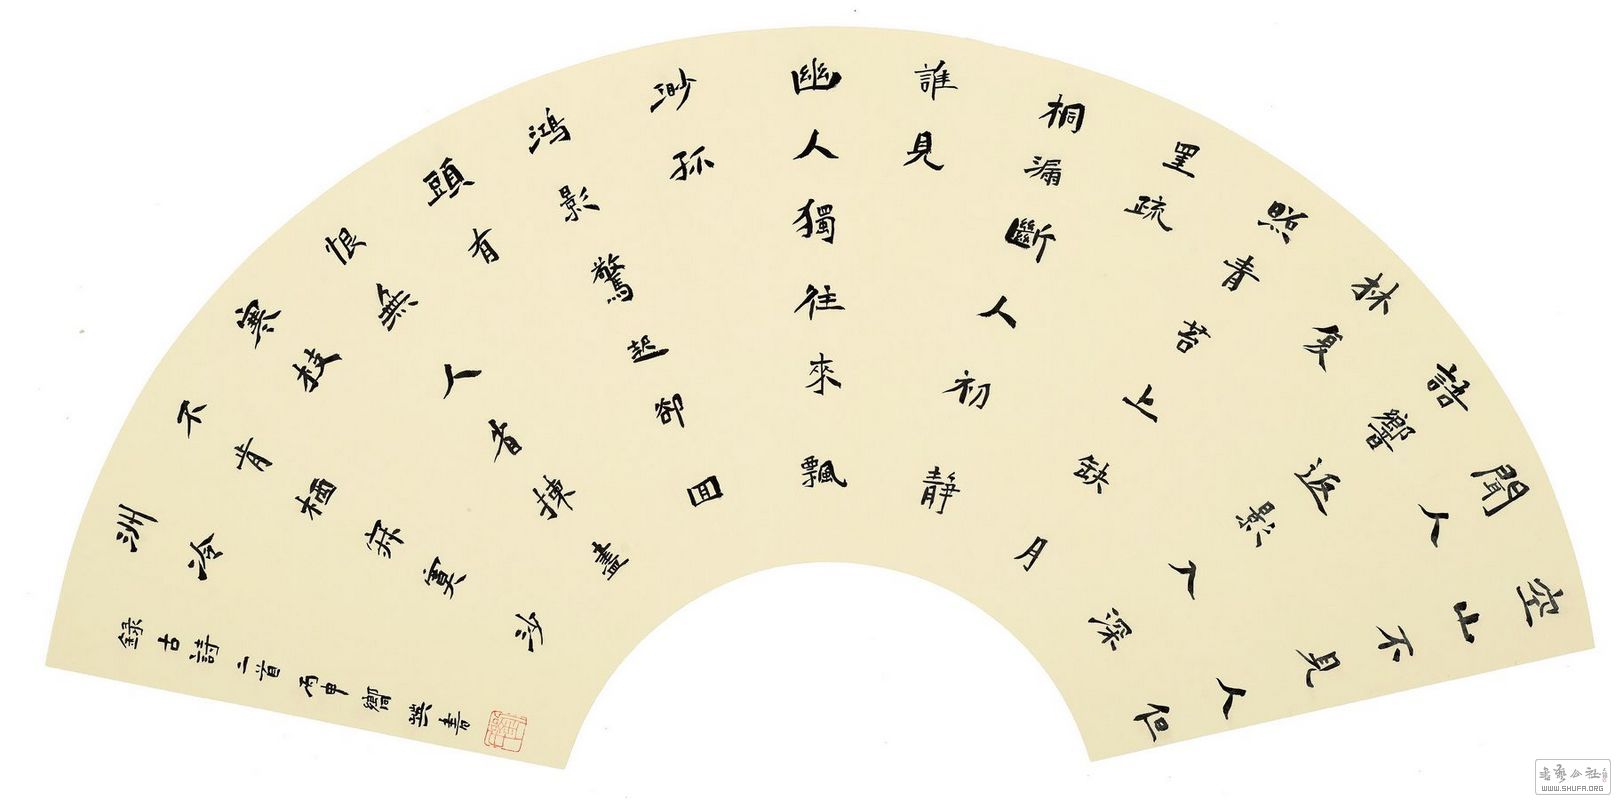 空山不見人但
聞人
語響返影入深
林复
照青苔上缺月
罣疏
桐漏斷人初静
誰見
幽人獨往來飄
渺孤
鴻影驚起卻回
頭有
恨無人省揀盡
寒枝
不肯栖寂寞沙
洲冷
録古詩二首丙申嚮英書
WWW.SHUFA.ORG